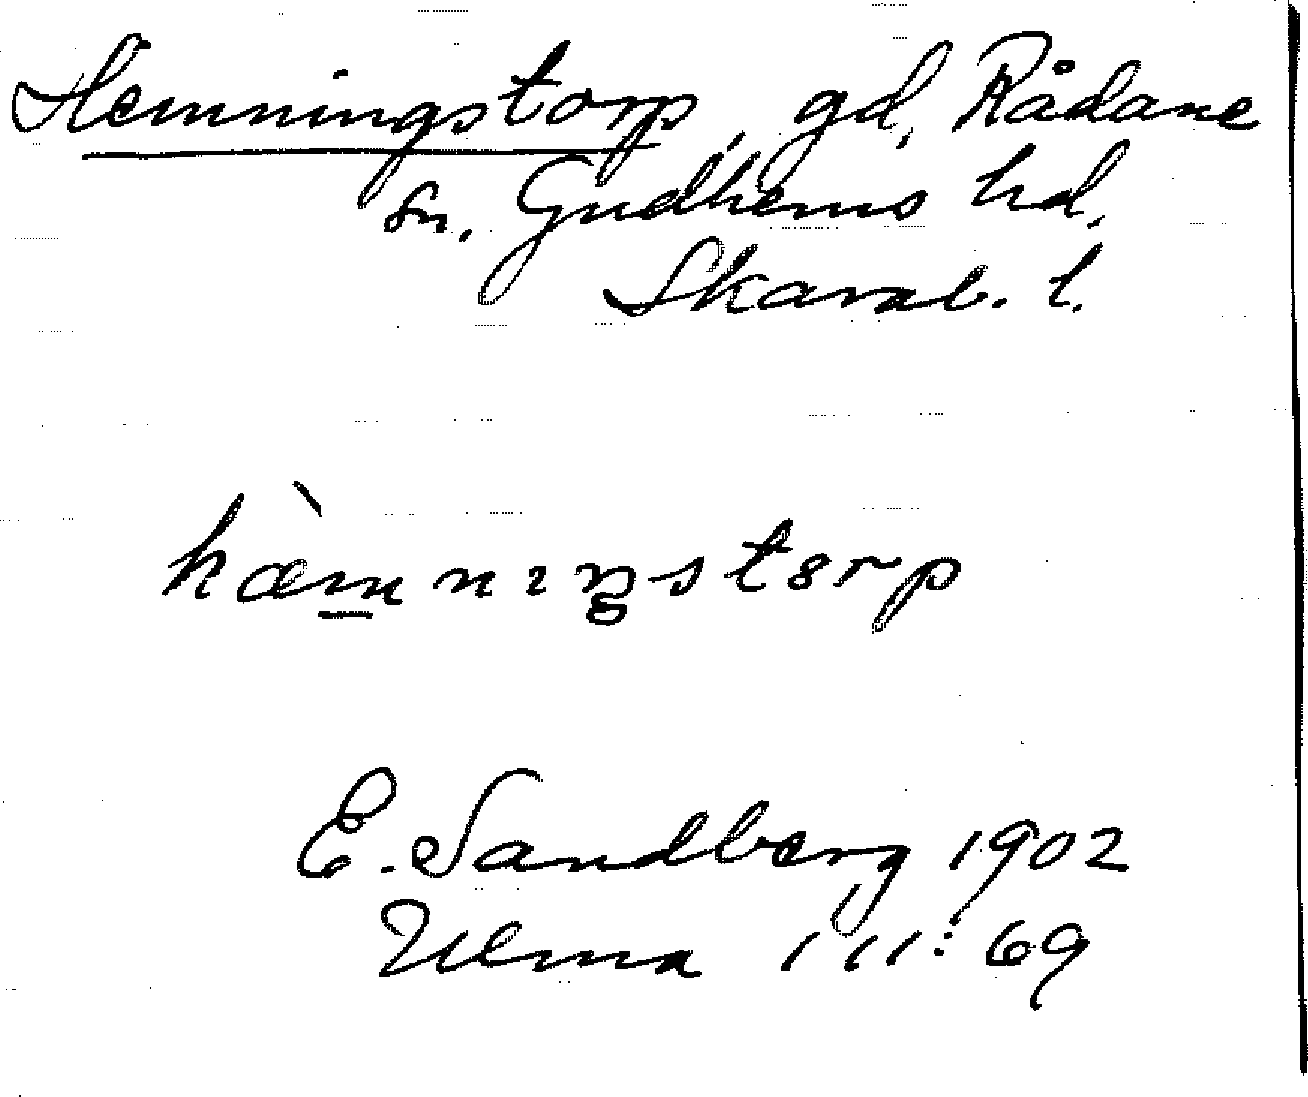 Hemningstorp, gd, Rådane
sn. Gudhems hd.
Skarab. l.
hæ̀mnıŋstorp
E. Sandberg 1902
Ulma 111:69